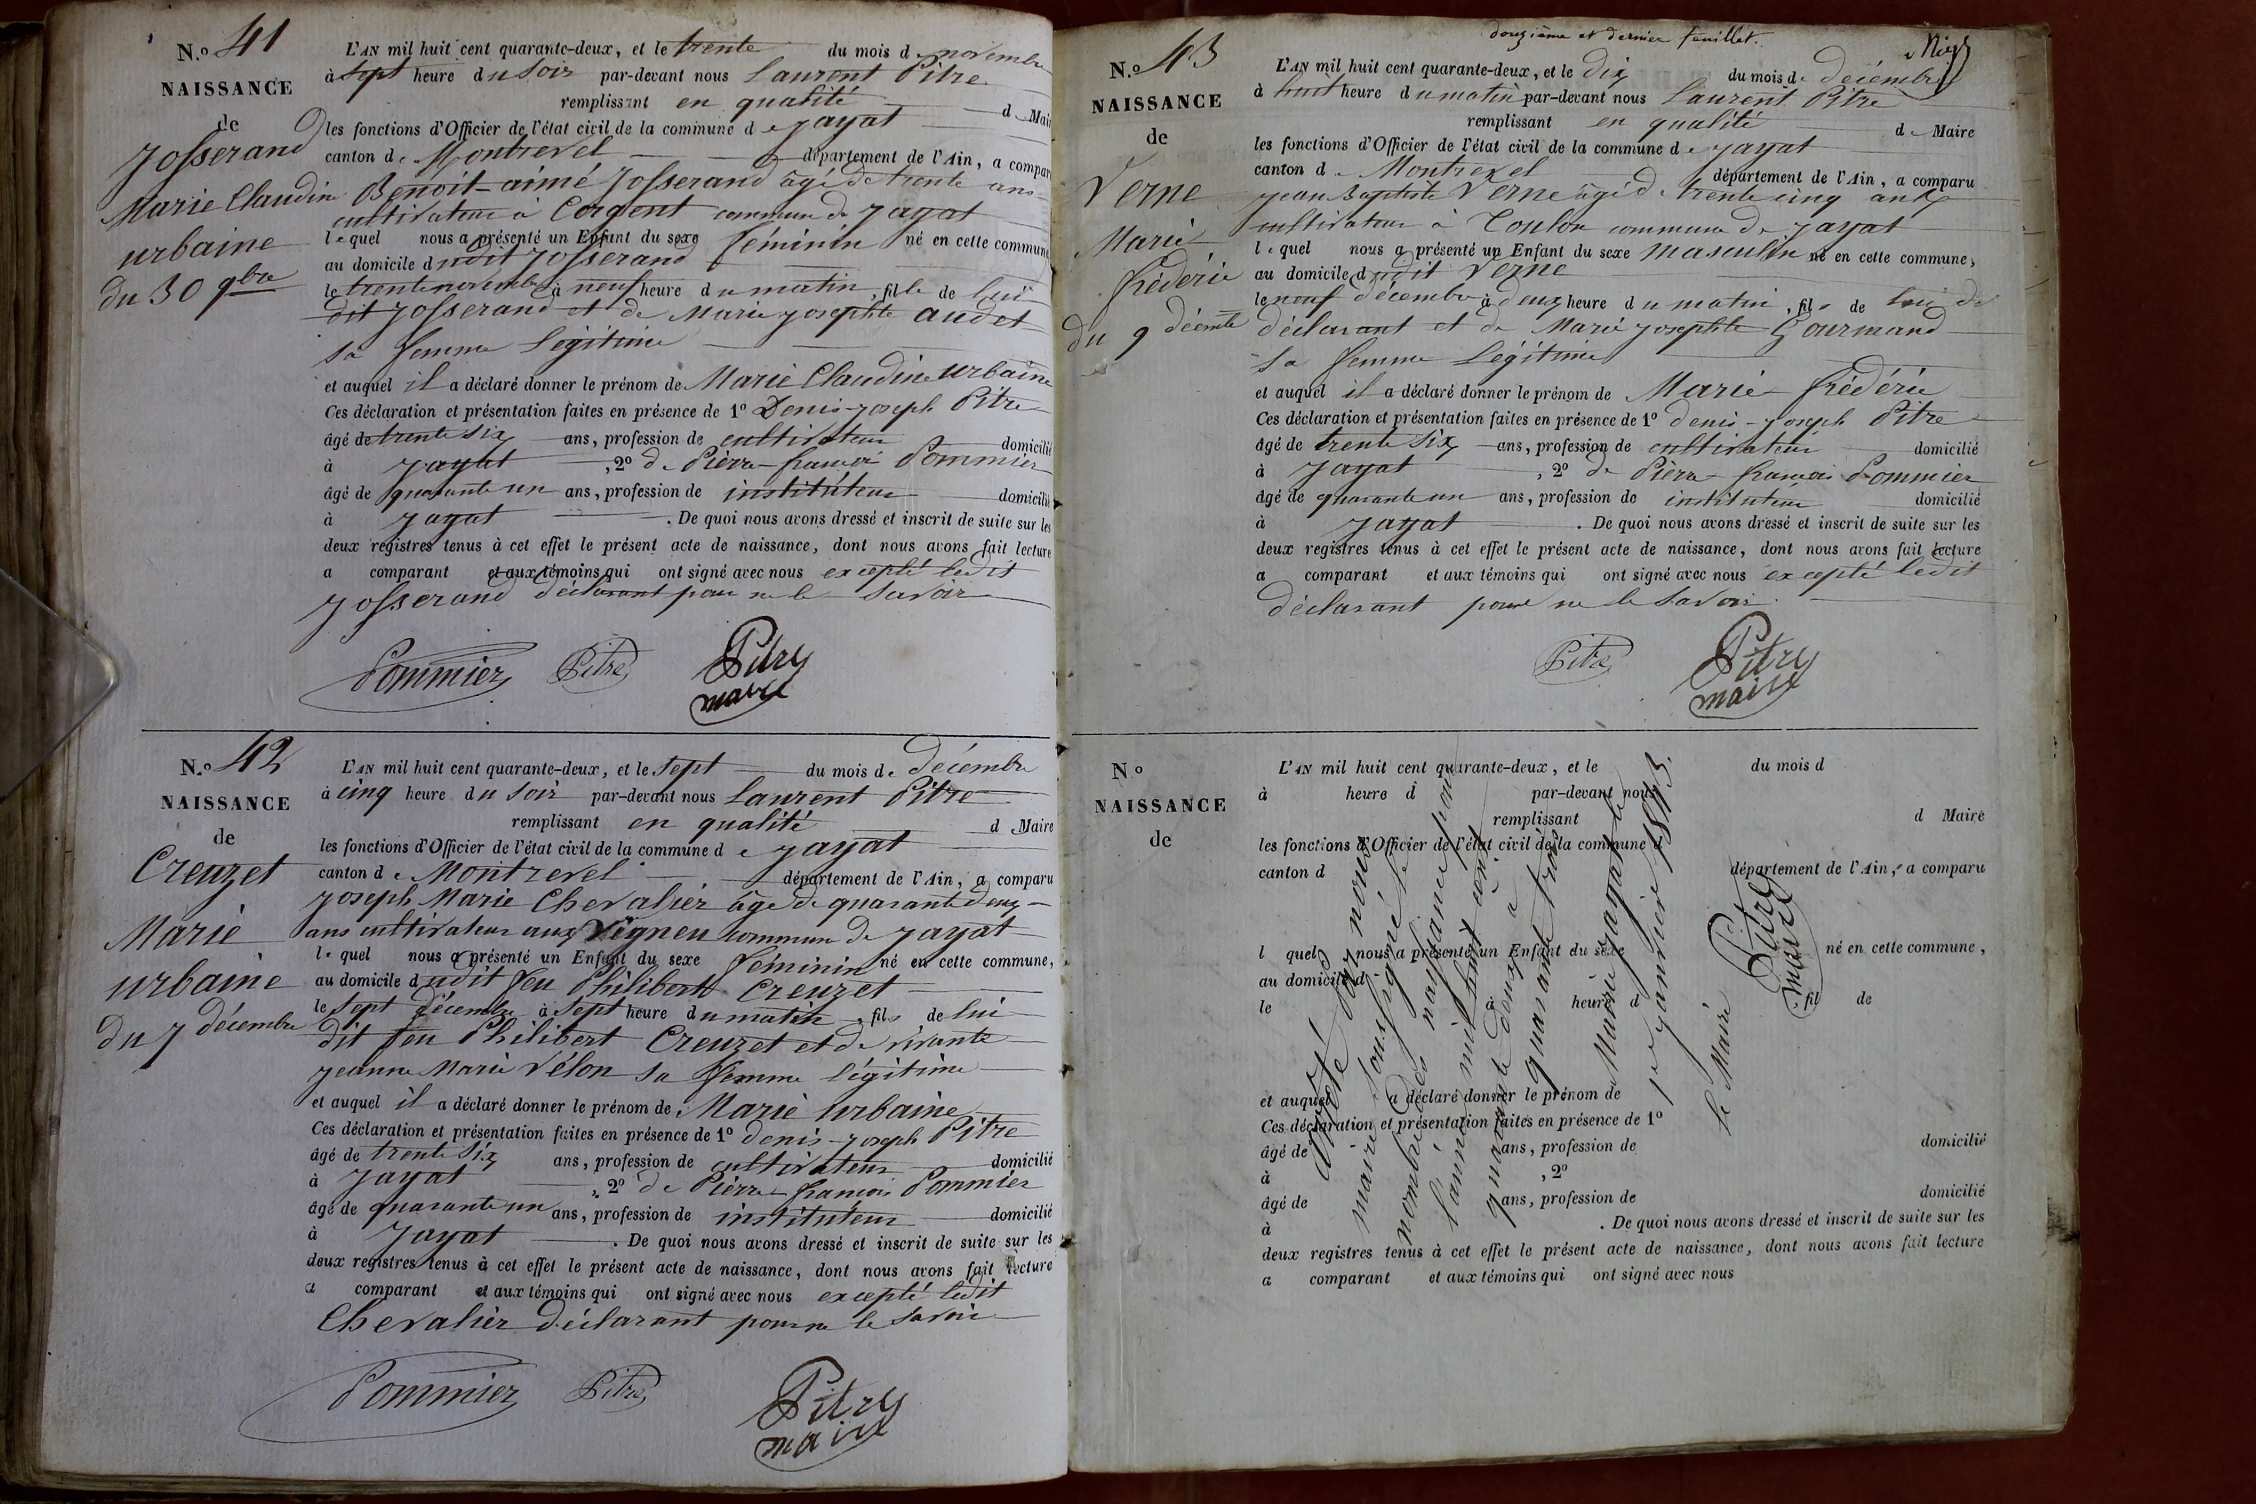 N.o 41
NAISSANCE
de
Josserand
Marie Claudine
urbaine
du 30 9bre
L'AN mil huit cent quarante-deux, et le trente du mois d e novembre
à sept heure d u soir par-devant nous Laurent Pitre
remplissant en qualité d e Maire
les fonctions d'Officier de l'état civil de la commune d e Jayat
canton d e Montrevel département de l'Ain, a comparu
Benoit-aimé Josserand âgé de trente ans
cultivateur à Corgent commune de Jayat
l e quel nous a présenté un Enfant du sexe féminin né en cette commune,
au domicile d udit Josserand
le trente novembre à neuf heure d u matin, fil le de lui
dit Josserand et de Marie josephte audet
sa femme légitime
et auquel il a déclaré donner le prénom de Marie Claudine urbaine
Ces déclaration et présentation faites en présence de 1o Denis-joseph Pitre
âgé de trente six ans, profession de cultivateur domicilié
à Jayat, 2o de Pierre-francois Pommier
âgé de quarante un ans, profession de instituteur domicilié
à Jayat. De quoi nous avons dressé et inscrit de suite sur les
deux registres tenus à cet effet le présent acte de naissance, dont nous avons fait lecture
a comparant et aux témoins qui ont signé avec nous excepté ledit
Josserand déclarant pour ne le savoir
Pommier Pitre Pitre
maire
N.o 42
NAISSANCE
de
Creuzet
Marie
urbaine
du 7 décembre
L'AN mil huit cent quarante-deux, et le sept du mois d e décembre
à cinq heure d u soir par-devant nous Laurent Pitre
remplissant en qualité d e Maire
les fonctions d'Officier de l'état civil de la commune d e Jayat
canton d e Montrevel département de l'Ain, a comparu
joseph Marie Chevalier âgé de quarante deux
ans cultivateur aux Vigneu commune de Jayat
l e quel nous a présenté un Enfant du sexe féminin né en cette commune,
au domicile d udit feu Philibert Creuzet
le sept décembre à sept heure d u matin, fil de lui
dit feu Philibert Creuzet et de vivante
jeanne Marie Vélon sa femme légitime
et auquel il a déclaré donner le prénom de Marie urbaine
Ces déclaration et présentation faites en présence de 1o denis-joseph Pitre
âgé de trente six ans, profession de cultivateur domicilié
à Jayat, 2o de Pierre-francois Pommier
âgé de quarante un ans, profession de instituteur domicilié
à Jayat. De quoi nous avons dressé et inscrit de suite sur les
deux registres tenus à cet effet le présent acte de naissance, dont nous avons fait lecture
a comparant et aux témoins qui ont signé avec nous excepté ledit
Chevalier déclarant pour ne le savoir
Pommier Pitre Pitre
maire
douzième et dernier feuillet.
N.o 43
NAISSANCE
de
Verne
Marie
frédéric
du 9 décembre
L'AN mil huit cent quarante-deux, et le dix du mois d e décembre
à huit heure d u matin par-devant nous Laurent Pitre
remplissant en qualité d e Maire
les fonctions d'Officier de l'état civil de la commune d e Jayat
canton d e Montrevel département de l'Ain, a comparu
jean Baptiste Verne âgé de trente cinq ans
cultivateur à Toulon commune de Jayat
l e quel nous a présenté un Enfant du sexe masculin né en cette commune,
au domicile d udit Verne
le neuf décembre à deux heure d u matin, fil s de lui dit
déclarant et de Marie josephte Gourmand
sa femme légitime
et auquel il a déclaré donner le prénom de Marie frédéric
Ces déclaration et présentation faites en présence de 1o denis-joseph Pitre
âgé de trente six ans, profession de cultivateur domicilié
à Jayat, 2o de Pierre-francois Pommier
âgé de quarante un ans, profession de instituteur domicilié
à Jayat. De quoi nous avons dressé et inscrit de suite sur les
deux registres tenus à cet effet le présent acte de naissance, dont nous avons fait lecture
a comparant et aux témoins qui ont signé avec nous excepté ledit
déclarant pour ne le savoir
Pitre Pitre
maire
N.o
NAISSANCE
de
L'AN mil huit cent quarante-deux, et le du mois d
à heure d par-devant nous
remplissant d Maire
les fonctions d'Officier de l'état civil de la commune d
canton d département de l'Ain, a comparu
l quel nous a présenté un Enfant du sexe né en cette commune,
au domicile d
le à heure d fil de
et auquel a déclaré donner le prénom de
Ces déclaration et présentation faites en présence de 1o
âgé de ans, profession de domicilié
à, 2o
âgé de ans, profession de domicilié
à. De quoi nous avons dressé et inscrit de suite sur les
deux registres tenus à cet effet le présent acte de naissance, dont nous avons fait lecture
a comparant et aux témoins qui ont signé avec nous
Arrêté par nous
maire soussigné le
nombre des naissances pour
l'année mil huit cent
quarante deux à
quarante trois
Mairie jayat le
1er janvier 1843.
le Maire
Pitre
maire